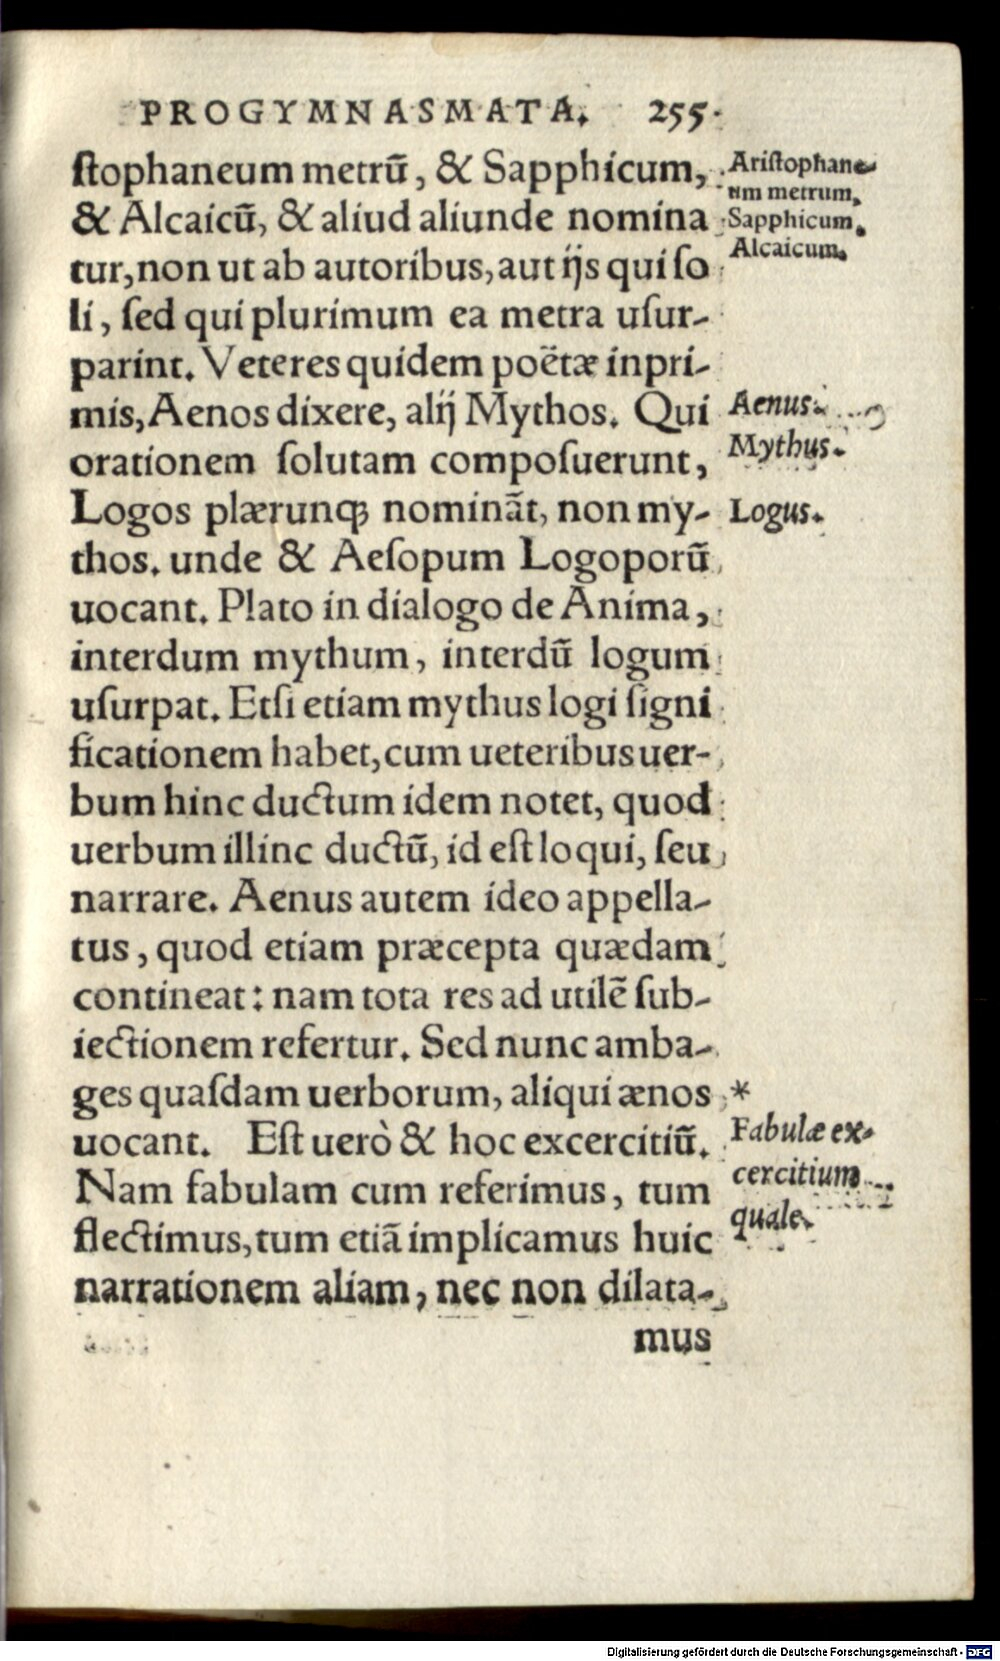 PROGYMNASMATA. 255.
ſtophaneum metrũ, & Sapphicum,
& Alcaicũ, & aliud aliunde nomina
tur, non ut ab autoribus, aut ijs qui ſo
li, ſed qui plurimum ea metra uſur-
parint. Veteres quidem poëtæ inpri-
mis, Aenos dixere, alij Mythos. Qui
orationem ſolutam compoſuerunt,
Logos plærunqꝫ nominãt, non my-
thos. unde & Aeſopum Logoporũ
uocant. Plato in dialogo de Anima,
interdum mythum, interdũ logum
uſurpat. Etſi etiam mythus logi ſigni
ficationem habet, cum ueteribus uer-
bum hinc ductum idem notet, quod
uerbum illinc ductũ, id eſt loqui, ſeu
narrare. Aenus autem ideo appella-
tus, quod etiam præcepta quædam
contineat: nam tota res ad utilẽ ſub-
iectionem refertur. Sed nunc amba-
ges quaſdam uerborum, aliqui ænos
uocant. Eſt uerò & hoc excercitiũ.
Nam fabulam cum referimus, tum
flectimus, tum etiã implicamus huic
narrationem aliam, nec non dilata-
mus
Ariſtophane-
um metrum.
Sapphicum.
Alcaicum.
Aenus.
Mythus.
Logus.
*
Fabulæ ex-
cercitium
quale.
Digitalisierung gefördert durch die Deutsche Forschungsgemeinschaft - DFG